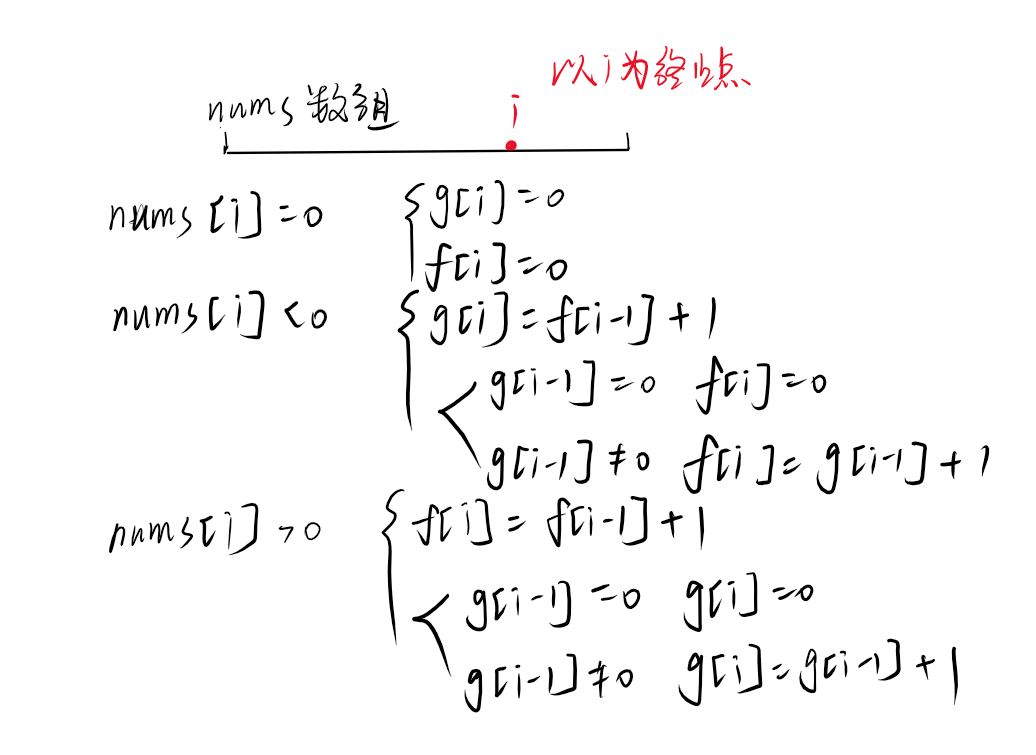 以i为终止点
nums数组
i
nums[i]=0 { g[i]=0
f[i]=0
nums[i]<0 { g[i]=f[i-1]+1
g[i-1]=0 f[i]=0
g[i-1]≠0 f[i]=g[i-1]+1
nums[i]>0 { f[i]=f[i-1]+1
g[i-1]=0 g[i]=0
g[i-1]≠0 g[i]=g[i-1]+1